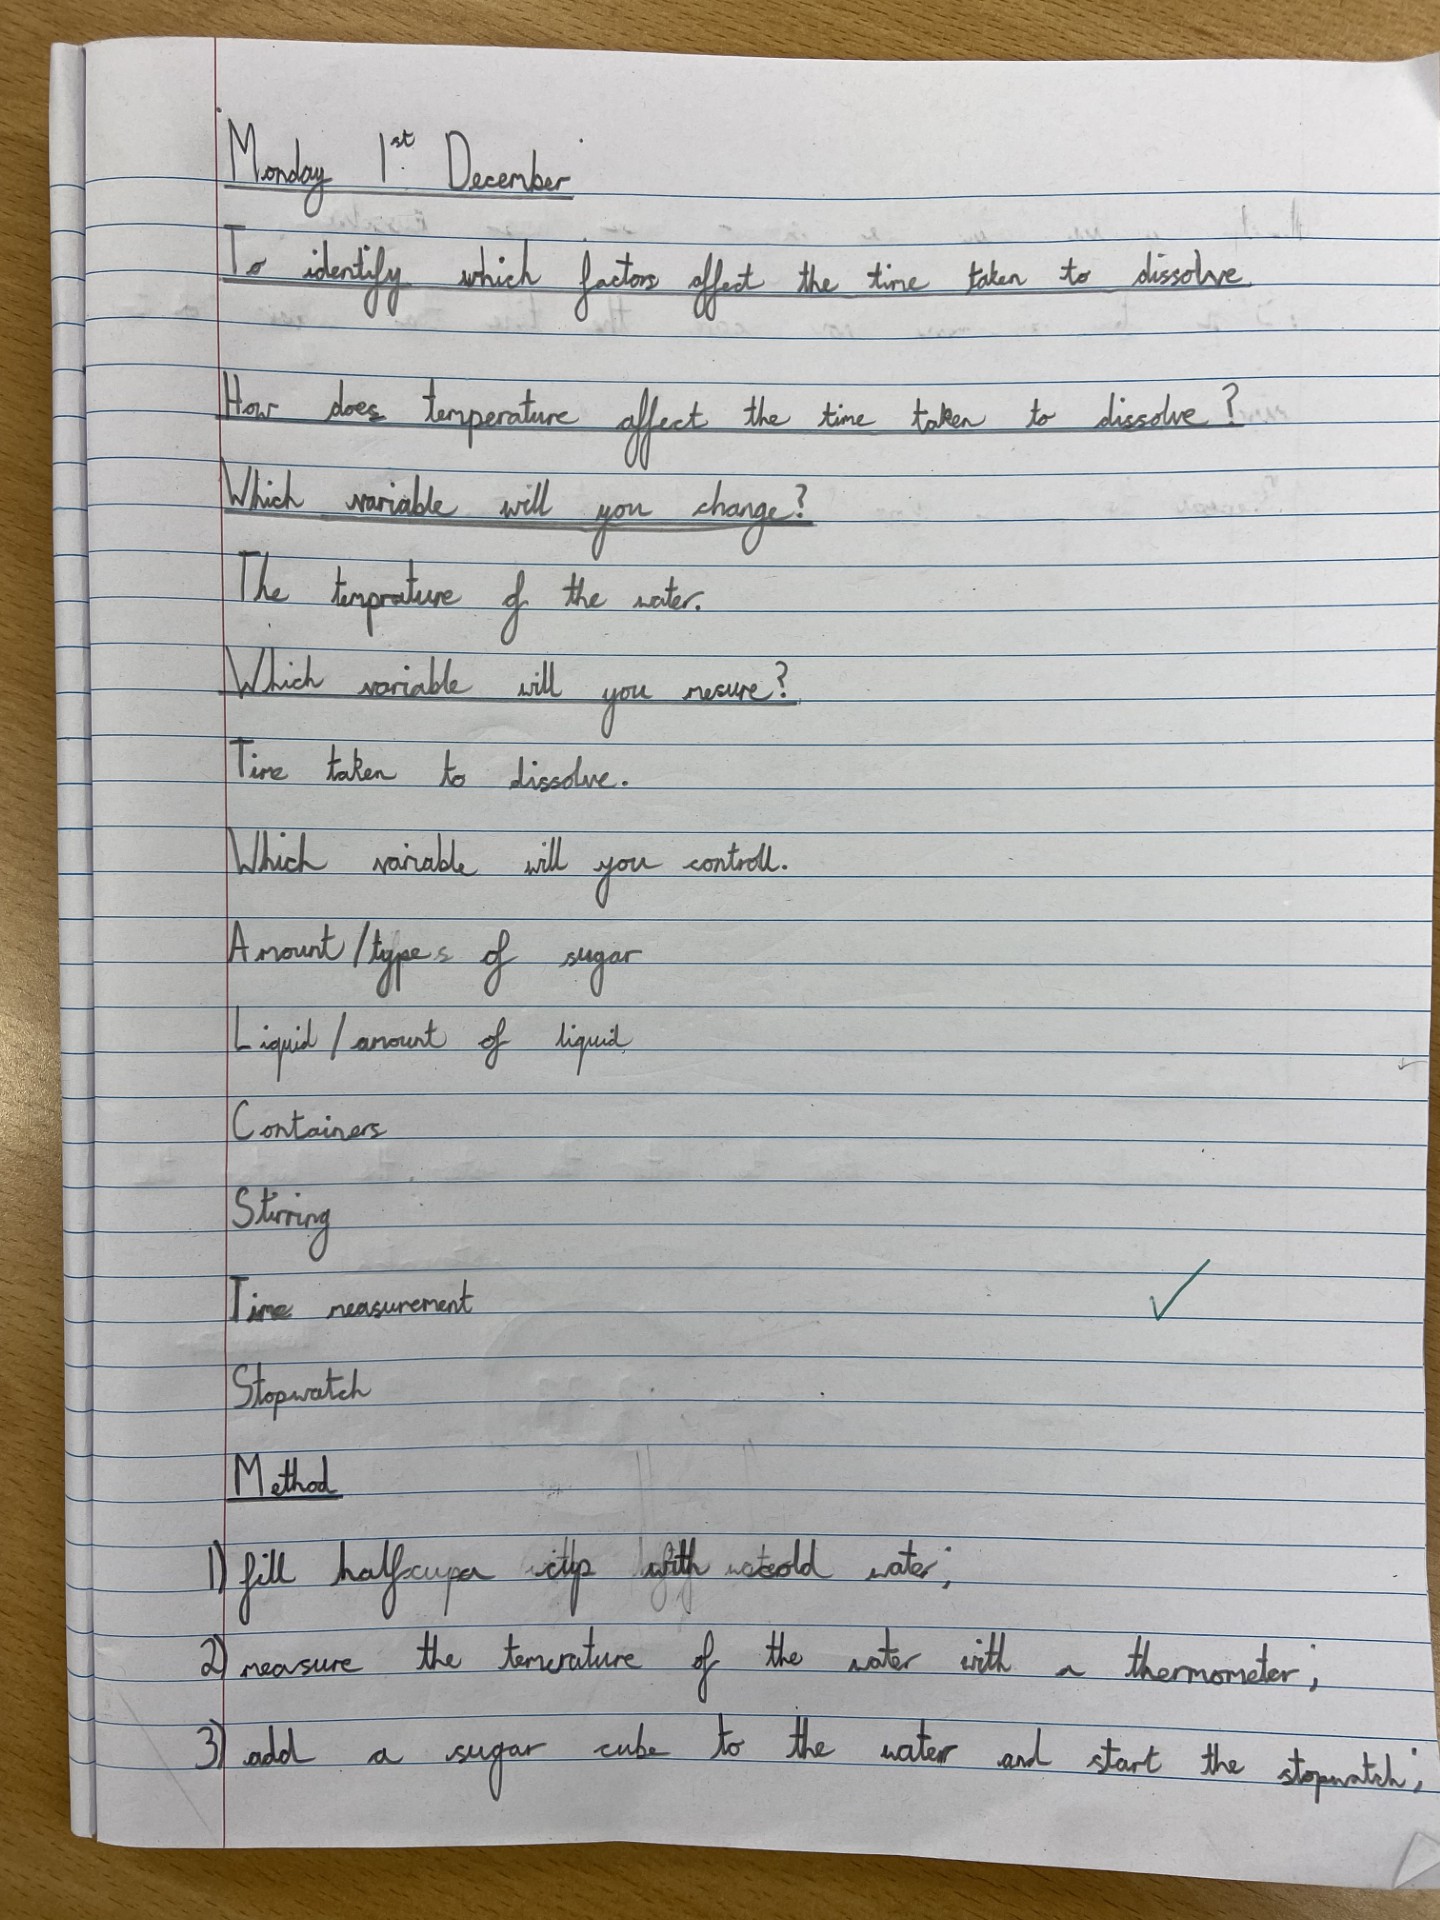 Monday 1st December
To identify which factors affect the time taken to dissolve
How does temperature affect the time taken to dissolve?
Which variable will you change?
The temprature of the water.
Which variable will you mesure?
Time taken to dissolve.
Which variable will you controll.
Amount/types of sugar
Liquid/amount of liquid
Containers
Stirring
Time measurement
Stopwatch
Method
1) fill half cup with cold water;
2) measure the temerature of the water with a thermometer;
3) add a sugar cube to the water and start the stopwatch;